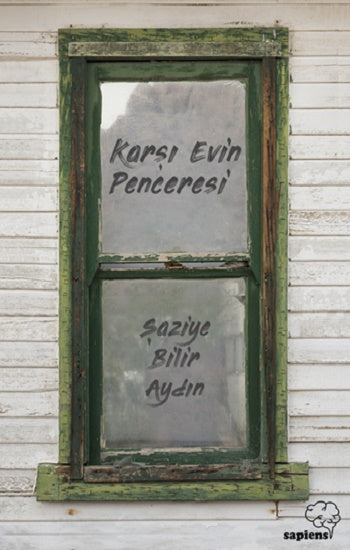 Karşı Evin
Penceresi
Şaziye
Bilir
Aydın
sapiens